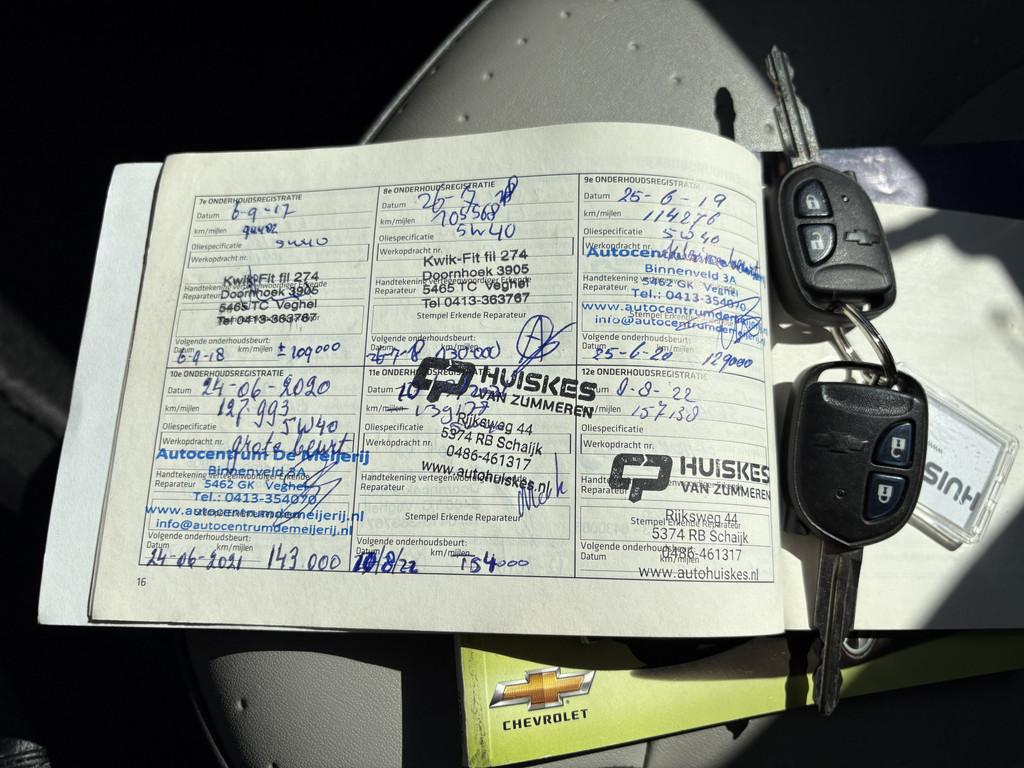 7e ONDERHOUDSREGISTRATIE
Datum 6-9-17
km/mijlen
Oliespecificatie 5W40
Werkopdracht nr.
Kwik-Fit fil 274
Doornhoek 3905
5465 TC Veghel
Tel 0413-363767
Volgende onderhoudsbeurt:
Datum km/mijlen
6-9-18 ± 109000
8e ONDERHOUDSREGISTRATIE
Datum 26-7-18
km/mijlen 105568
Oliespecificatie 5W40
Werkopdracht nr.
Kwik-Fit fil 274
Doornhoek 3905
5465 TC Veghel
Tel 0413-363767
Handtekening vertegenwoordiger Erkende
Reparateur
Stempel Erkende Reparateur
Volgende onderhoudsbeurt:
Datum km/mijlen
(130.000)
9e ONDERHOUDSREGISTRATIE
Datum 25-6-19
km/mijlen 114276
Oliespecificatie 5W40
Werkopdracht nr.
Autocentrum
Binnenveld 3A
5462 GK Veghel
Tel.: 0413-354070
www.autocentrumdemeijerij.nl
info@autocentrumdemeijerij.nl
Volgende onderhoudsbeurt:
Datum km/mijlen
25-6-20 129000
10e ONDERHOUDSREGISTRATIE
Datum 24-06-2020
km/mijlen 127.993
Oliespecificatie 5W40
Werkopdracht nr. grote beurt
Autocentrum De Meijerij
Handtekening vertegenwoordiger Erkende
Reparateur
Binnenveld 3A
5462 GK Veghel
Tel.: 0413-354070
www.autocentrumdemeijerij.nl
info@autocentrumdemeijerij.nl
Volgende onderhoudsbeurt:
Datum km/mijlen
24-06-2021 143.000
11e ONDERHOUDSREGISTRATIE
Datum
km/mijlen
Oliespecificatie
Werkopdracht nr.
HUISKES
VAN ZUMMEREN
Rijksweg 44
5374 RB Schaijk
0486-461317
www.autohuiskes.nl
Handtekening vertegenwoordiger Erkende
Reparateur
Stempel Erkende Reparateur
Volgende onderhoudsbeurt:
Datum km/mijlen
154000
12e ONDERHOUDSREGISTRATIE
Datum 8-8-22
km/mijlen 157138
Oliespecificatie
Werkopdracht nr.
HUISKES
VAN ZUMMEREN
Reparateur
Stempel Erkende Reparateur
Rijksweg 44
5374 RB Schaijk
0486-461317
www.autohuiskes.nl
Volgende onderhoudsbeurt:
Datum km/mijlen
16
CHEVROLET
HUIS